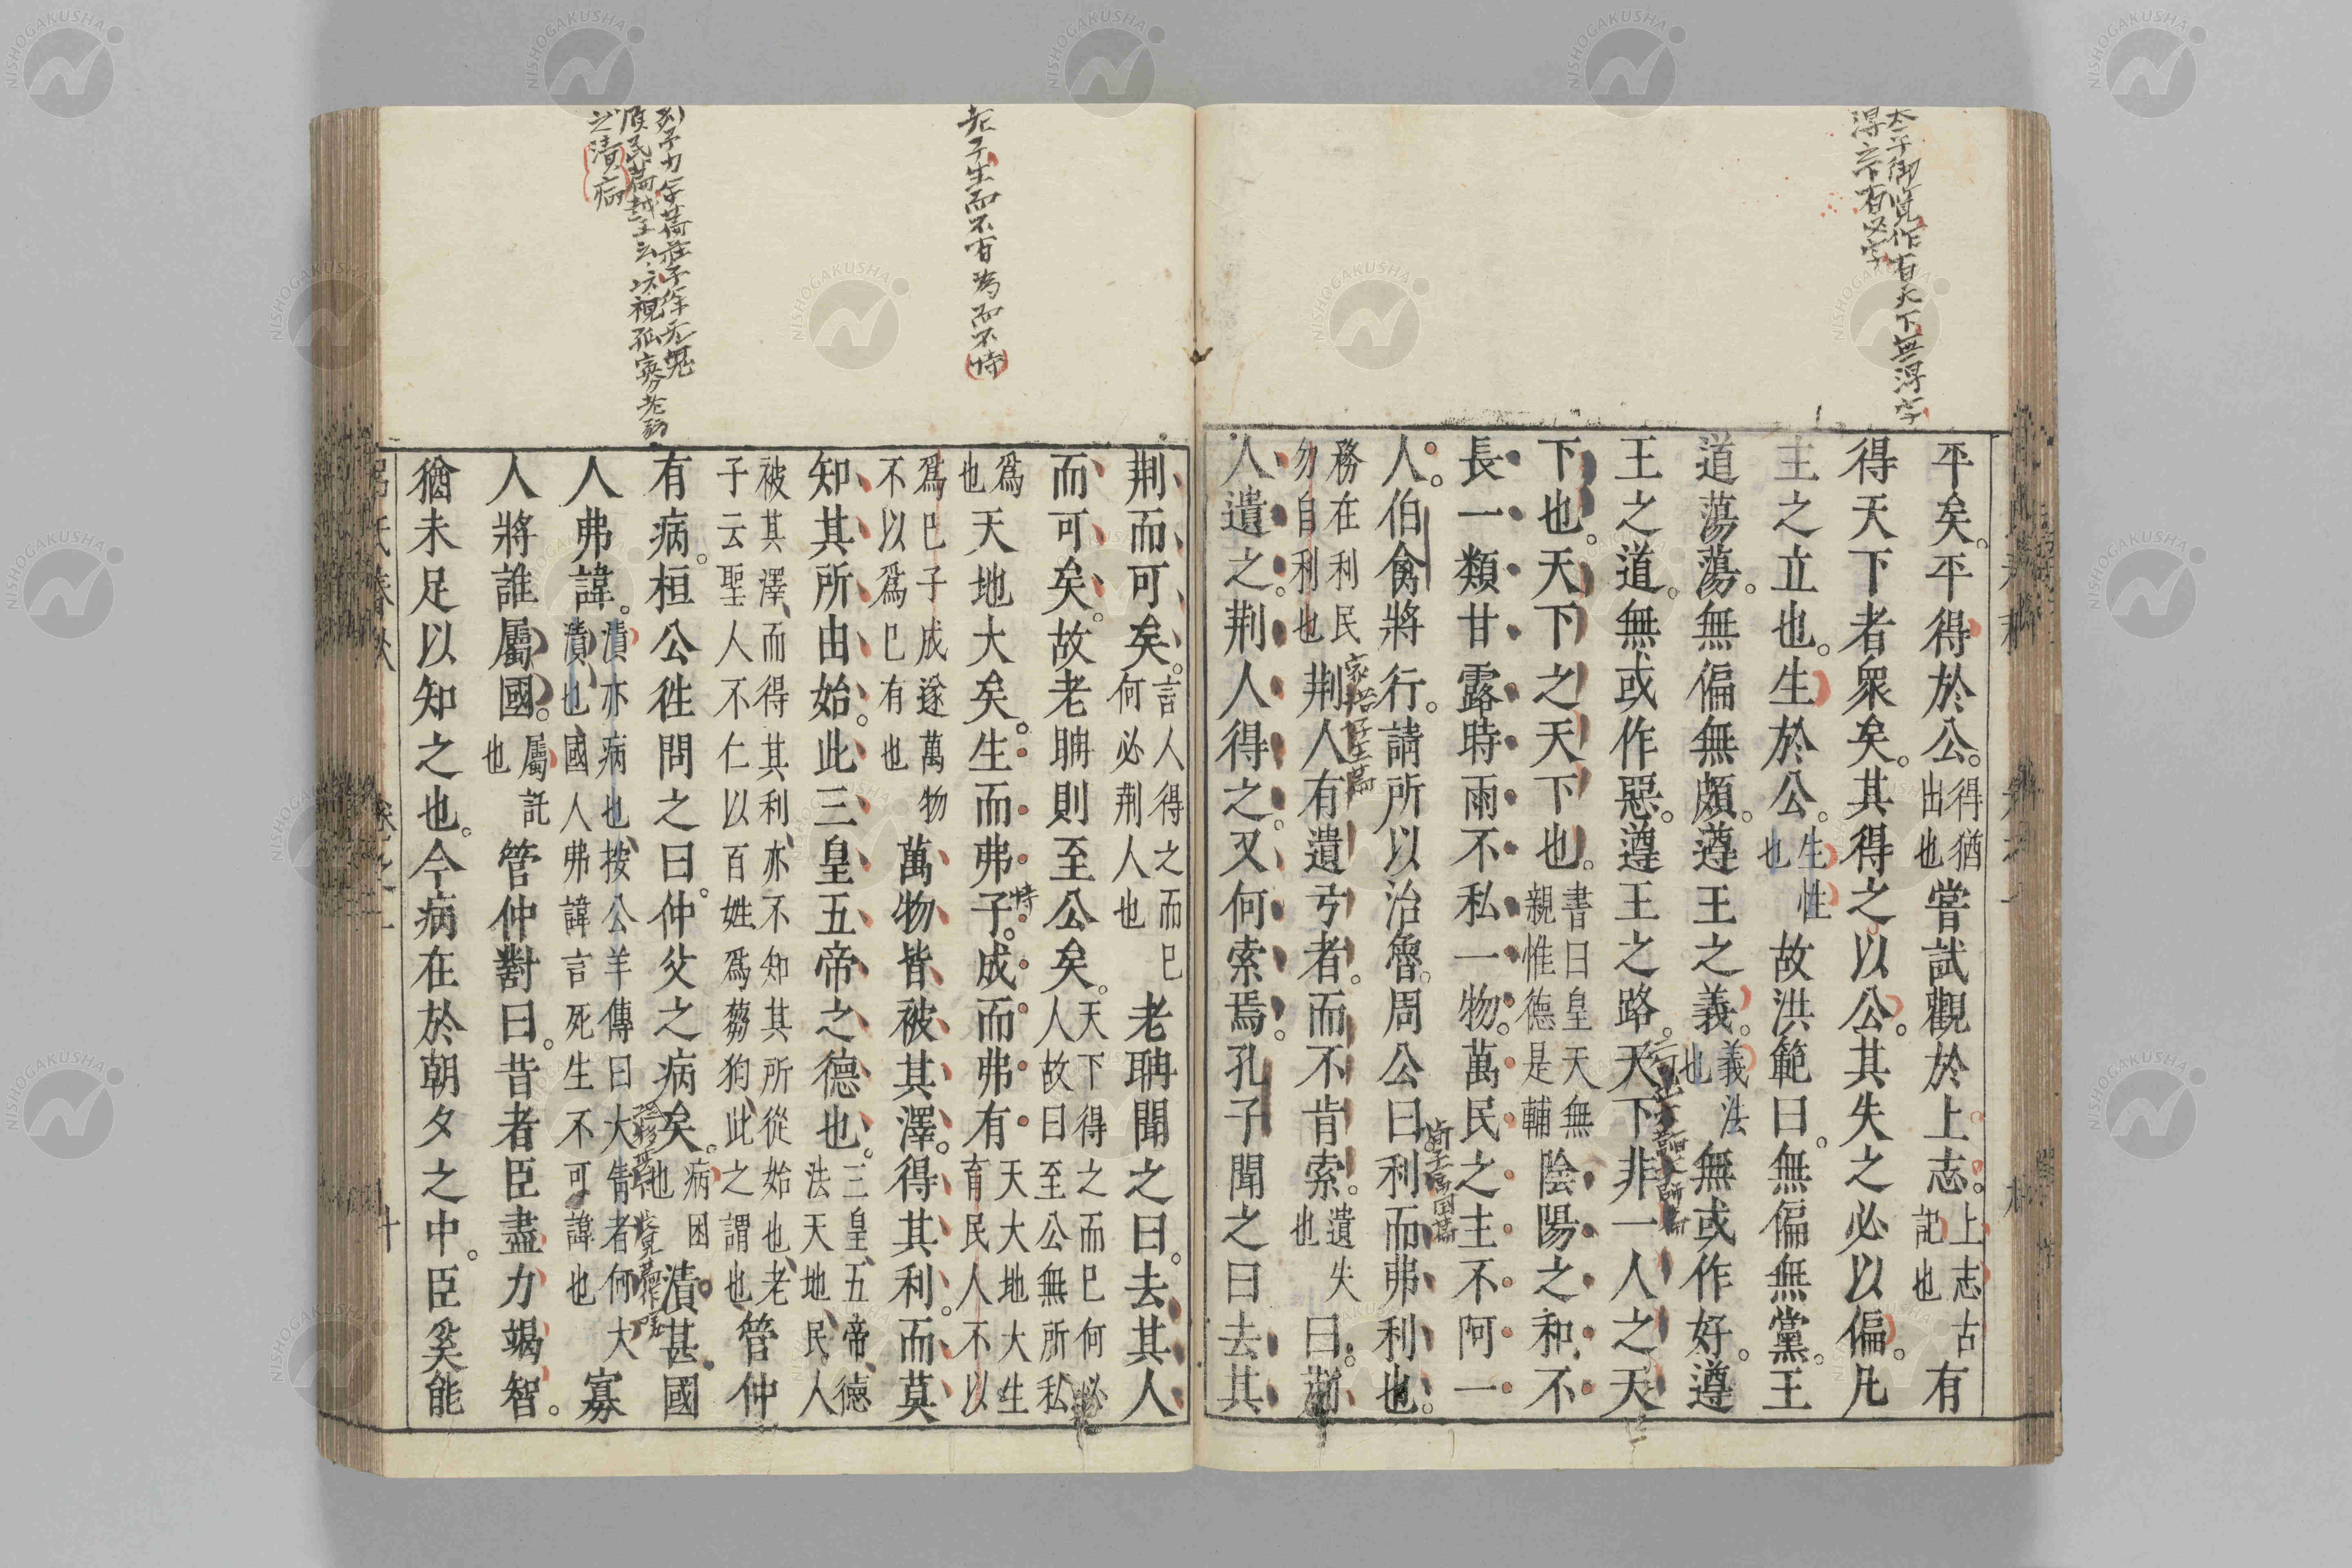 太平御覽作有天下無得字
得之下有必字
平矣。平得於公。得猶出也嘗試觀於上志。上志古記也有
得天下者衆矣。其得之以公。其失之必以偏。凡
主之立也。生於公。生性也故洪範曰。無偏無黨。王
道蕩蕩。無偏無頗。遵王之義。義法也無或作好。遵
王之道。無或作惡。遵王之路。天下非一人之天
下也。天下之天下也。書曰皇天無親惟德是輔陰陽之和。不
長一類甘露時雨不私一物。萬民之主不阿一
人。伯禽將行。請所以治魯。周公曰利而弗利也。
務在利民勿自利也荆人有遺弓者。而不肯索。遺失也曰。荆
人遺之。荆人得之。又何索焉。孔子聞之曰去其
老子生而不有為而不恃
荆而可矣。言人得之而已何必荆人也老聃聞之曰。去其人
而可矣。故老聃則至公矣。天下得之而已何必人故曰至公無所私
爲也天地大矣。生而弗子。成而弗有天大地大生育民人不以
爲已子成遂萬物不以爲已有也萬物皆被其澤。得其利。而莫
知其所由始。此三皇五帝之德也。三皇五帝德法天地民人
被其澤、而得其利、亦不知其所從始也、老子云聖人不仁以百姓爲芻狗、此之謂也管仲
有病。桓公往問之曰。仲父之病矣。病困也漬甚。國
人弗諱。漬亦病也、按公羊傳曰大眚者何大漬也國人弗諱言死生不可諱也寡
人將誰屬國。屬託也管仲對曰。昔者臣盡力竭智。
猶未足以知之也。今病在於朝夕之中。臣奚能
呂氏春秋 卷之一 十